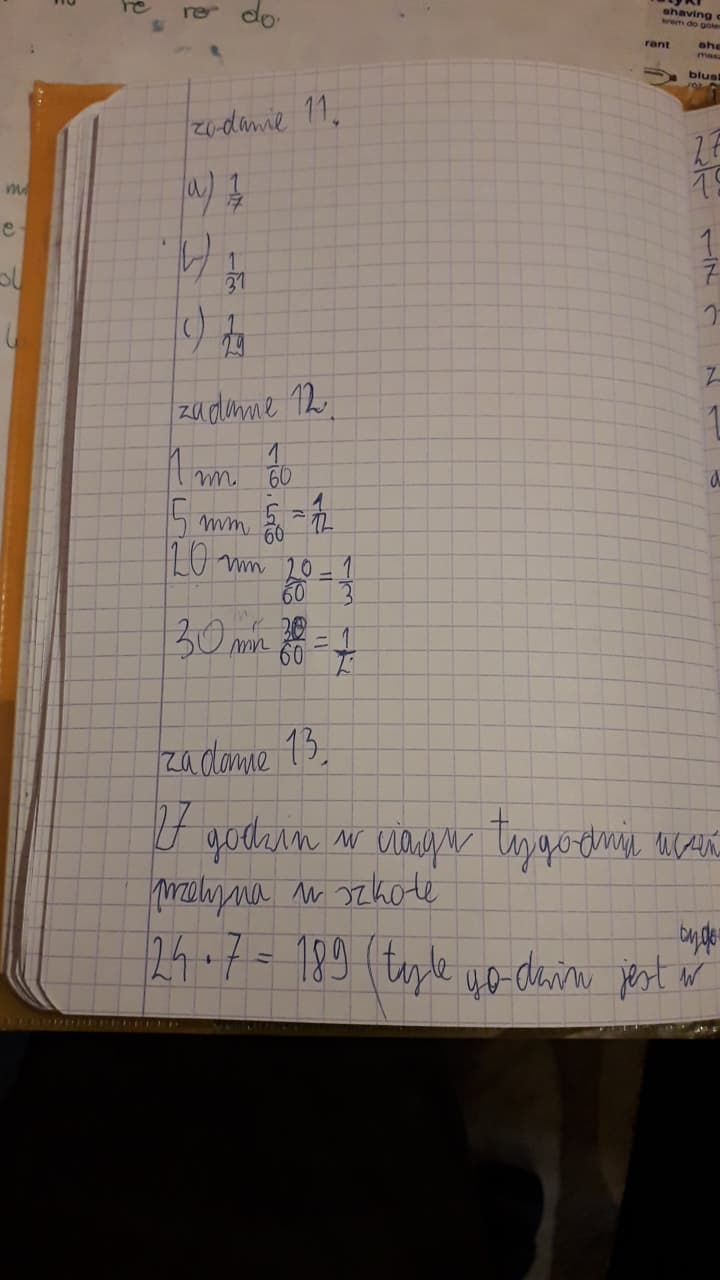 re ro do
shaving
krem do gole
rant
zadanie 11.
a) 1/7
b) 1/31
c) 1/29
zadanie 12.
1 m. 1/60
5 min 5/60 = 1/12
20 min 20/60 = 1/3
30 min 30/60 = 1/2
zadanie 13.
27 godzin w ciągu tygodnia uczeń
przebywa w szkole
24 · 7 = 189 (tyle godzin jest w tygo
27
1/7